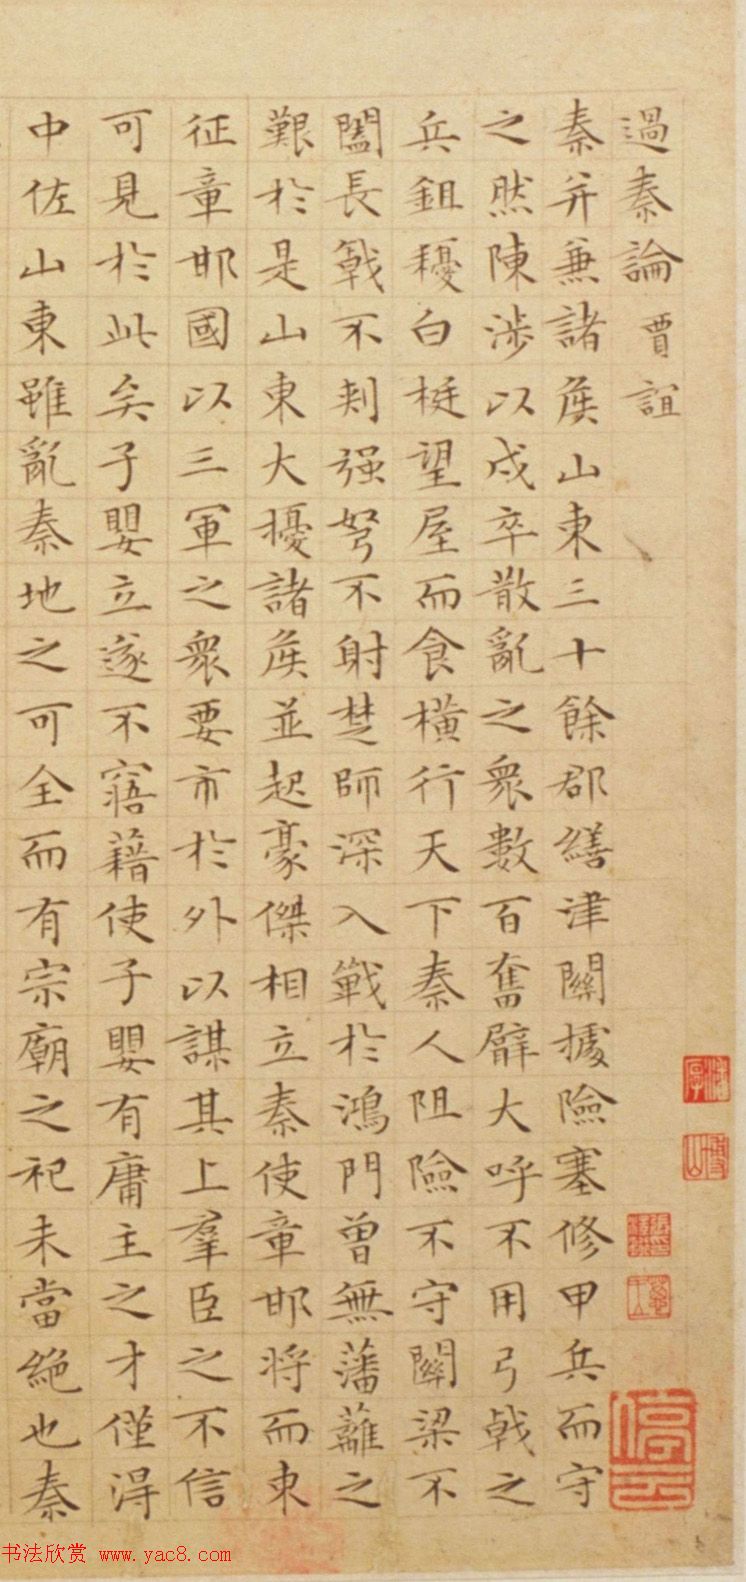 過秦論 賈誼
秦并兼諸侯山東三十餘郡繕津關據險塞修甲兵而守
之然陳涉以戍卒散亂之衆數百奮臂大呼不用弓戟之
兵鉏耰白梃望屋而食橫行天下秦人阻險不守關梁不
闔長戟不刺强弩不射楚師深入戰於鴻門曾無藩蘺之
艱於是山東大擾諸侯並起豪傑相立秦使章邯將而東
征章邯國以三軍之衆要市於外以謀其上羣臣之不信
可見於此矣子嬰立遂不寤藉使子嬰有庸主之才僅得
中佐山東雖亂秦地之可全而有宗廟之祀未當絶也秦
停云
书法欣赏 www.yac8.com